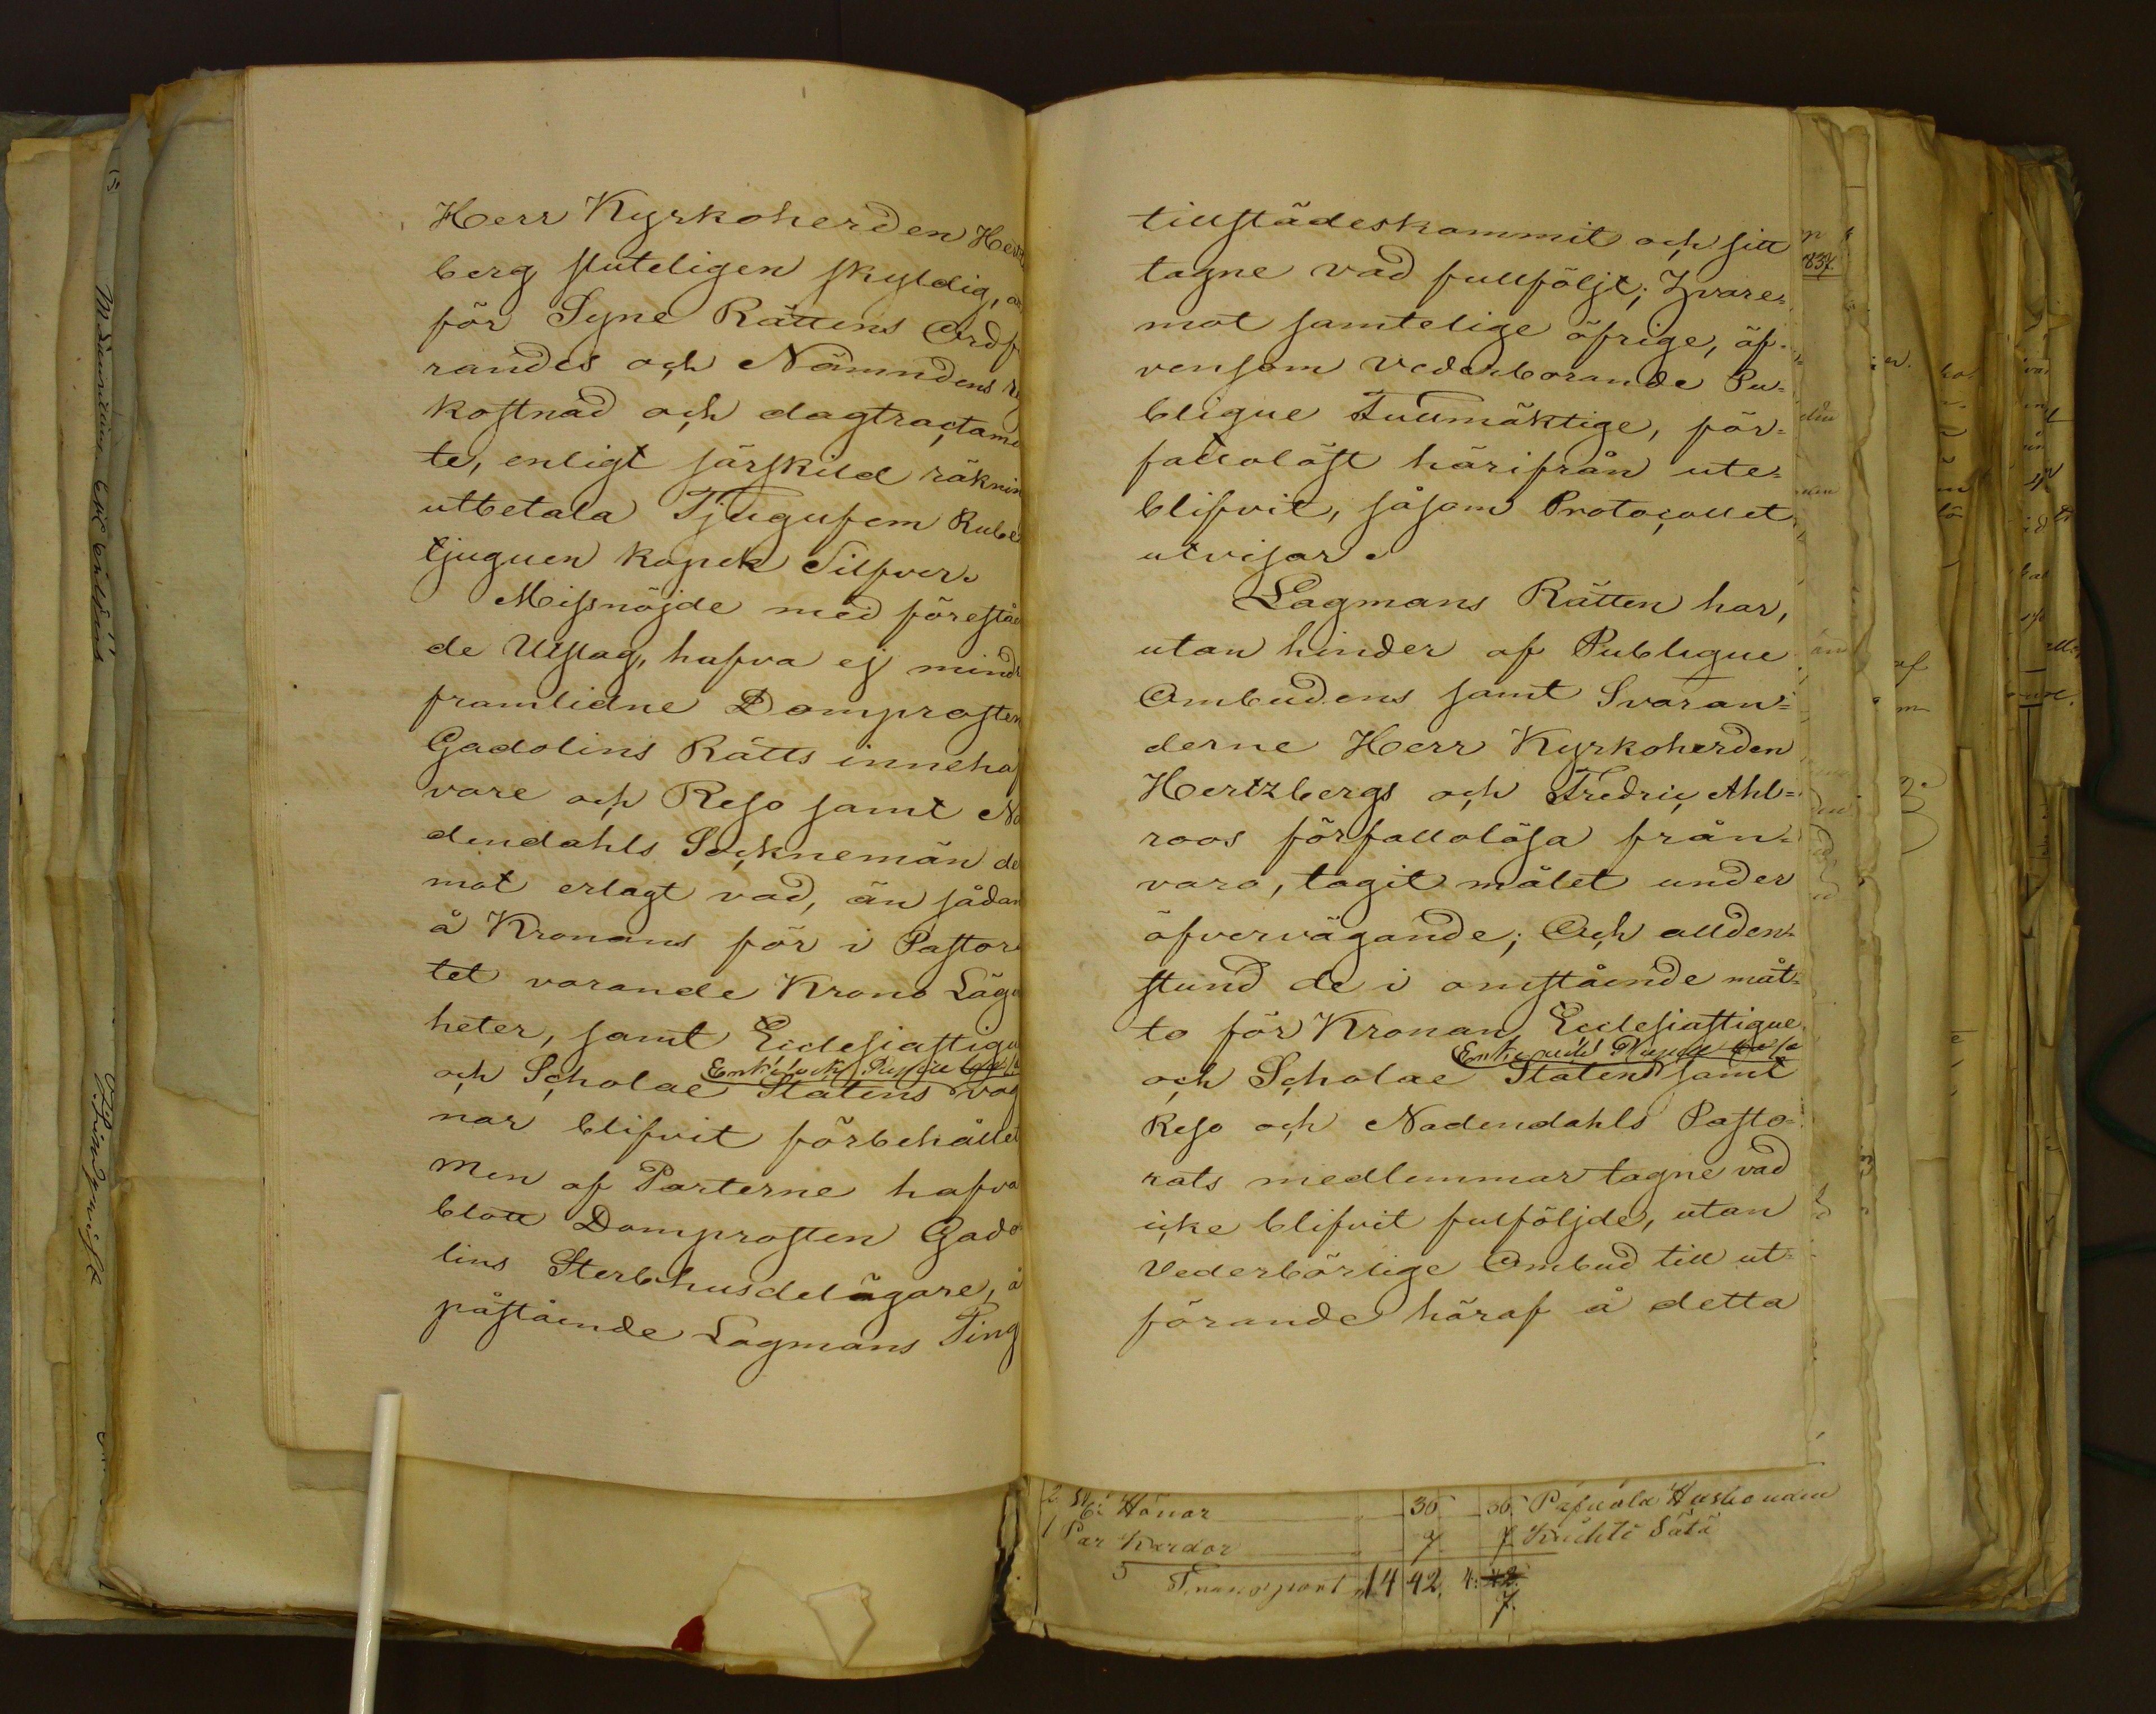 Herr Kyrkoherden Hertz
berg sluteligen skyldig,
för Syne Rättens Ordf
randes och Nämndens re
kostnad och dagtractame
te, enligt särskild räknin
utbetala Tjugufem Rube
tjuguen kopek Silfver.
Missnöjde med föreståe
de Utslag, hafva ej mind
framlidne Domprosten
Gadolins Rätts inneha
vare och Reso samt Na
dendahls Socknemän de
mot erlagt vad, än sådan
å Kronans för i Pastora
tet varande Krono Läge
heter, samt Ecclesiastiqu
Enke och Pupill Cassa
och Scholae Statens väg
nar blifvit förbehållet
Men af Parterne hafva
blott Domprosten Gado
lins Sterbhusdelägare, å
påstående Lagmans Ting
tillstädeskommit och sitt
tagne vad fullföljt; Hvare=
mot samtelige öfrige, äf=
vensom Vederborande Pu=
blique Fullmäktige, för=
fallolöst härifrån ute=
blifvit, såsom Protocollet
utvisar.
Lagmans Rätten har,
utan hinder af Publique
Ombudens samt Svaran=
derne Herr Kyrkoherden
Hertzbergs och Fredric Ahl=
roos förfallolösa från=
varo, tagit målet under
öfvervägande; Och allden=
stund de i omstående måt=
to för Kronan, Ecclesiastique
Enke och Pupill Cassa
och Scholae Staten samt
Reso och Nadendahls Pasto=
rats medlemmar tagne vad
icke blifvit fullföljde, utan
Vederbörlige Ombud till ut=
förande häraf å detta
837
2 St: Hönor 36 36
1 Par Kardor 7 7
Transport 14 42. 4: 42.
7.